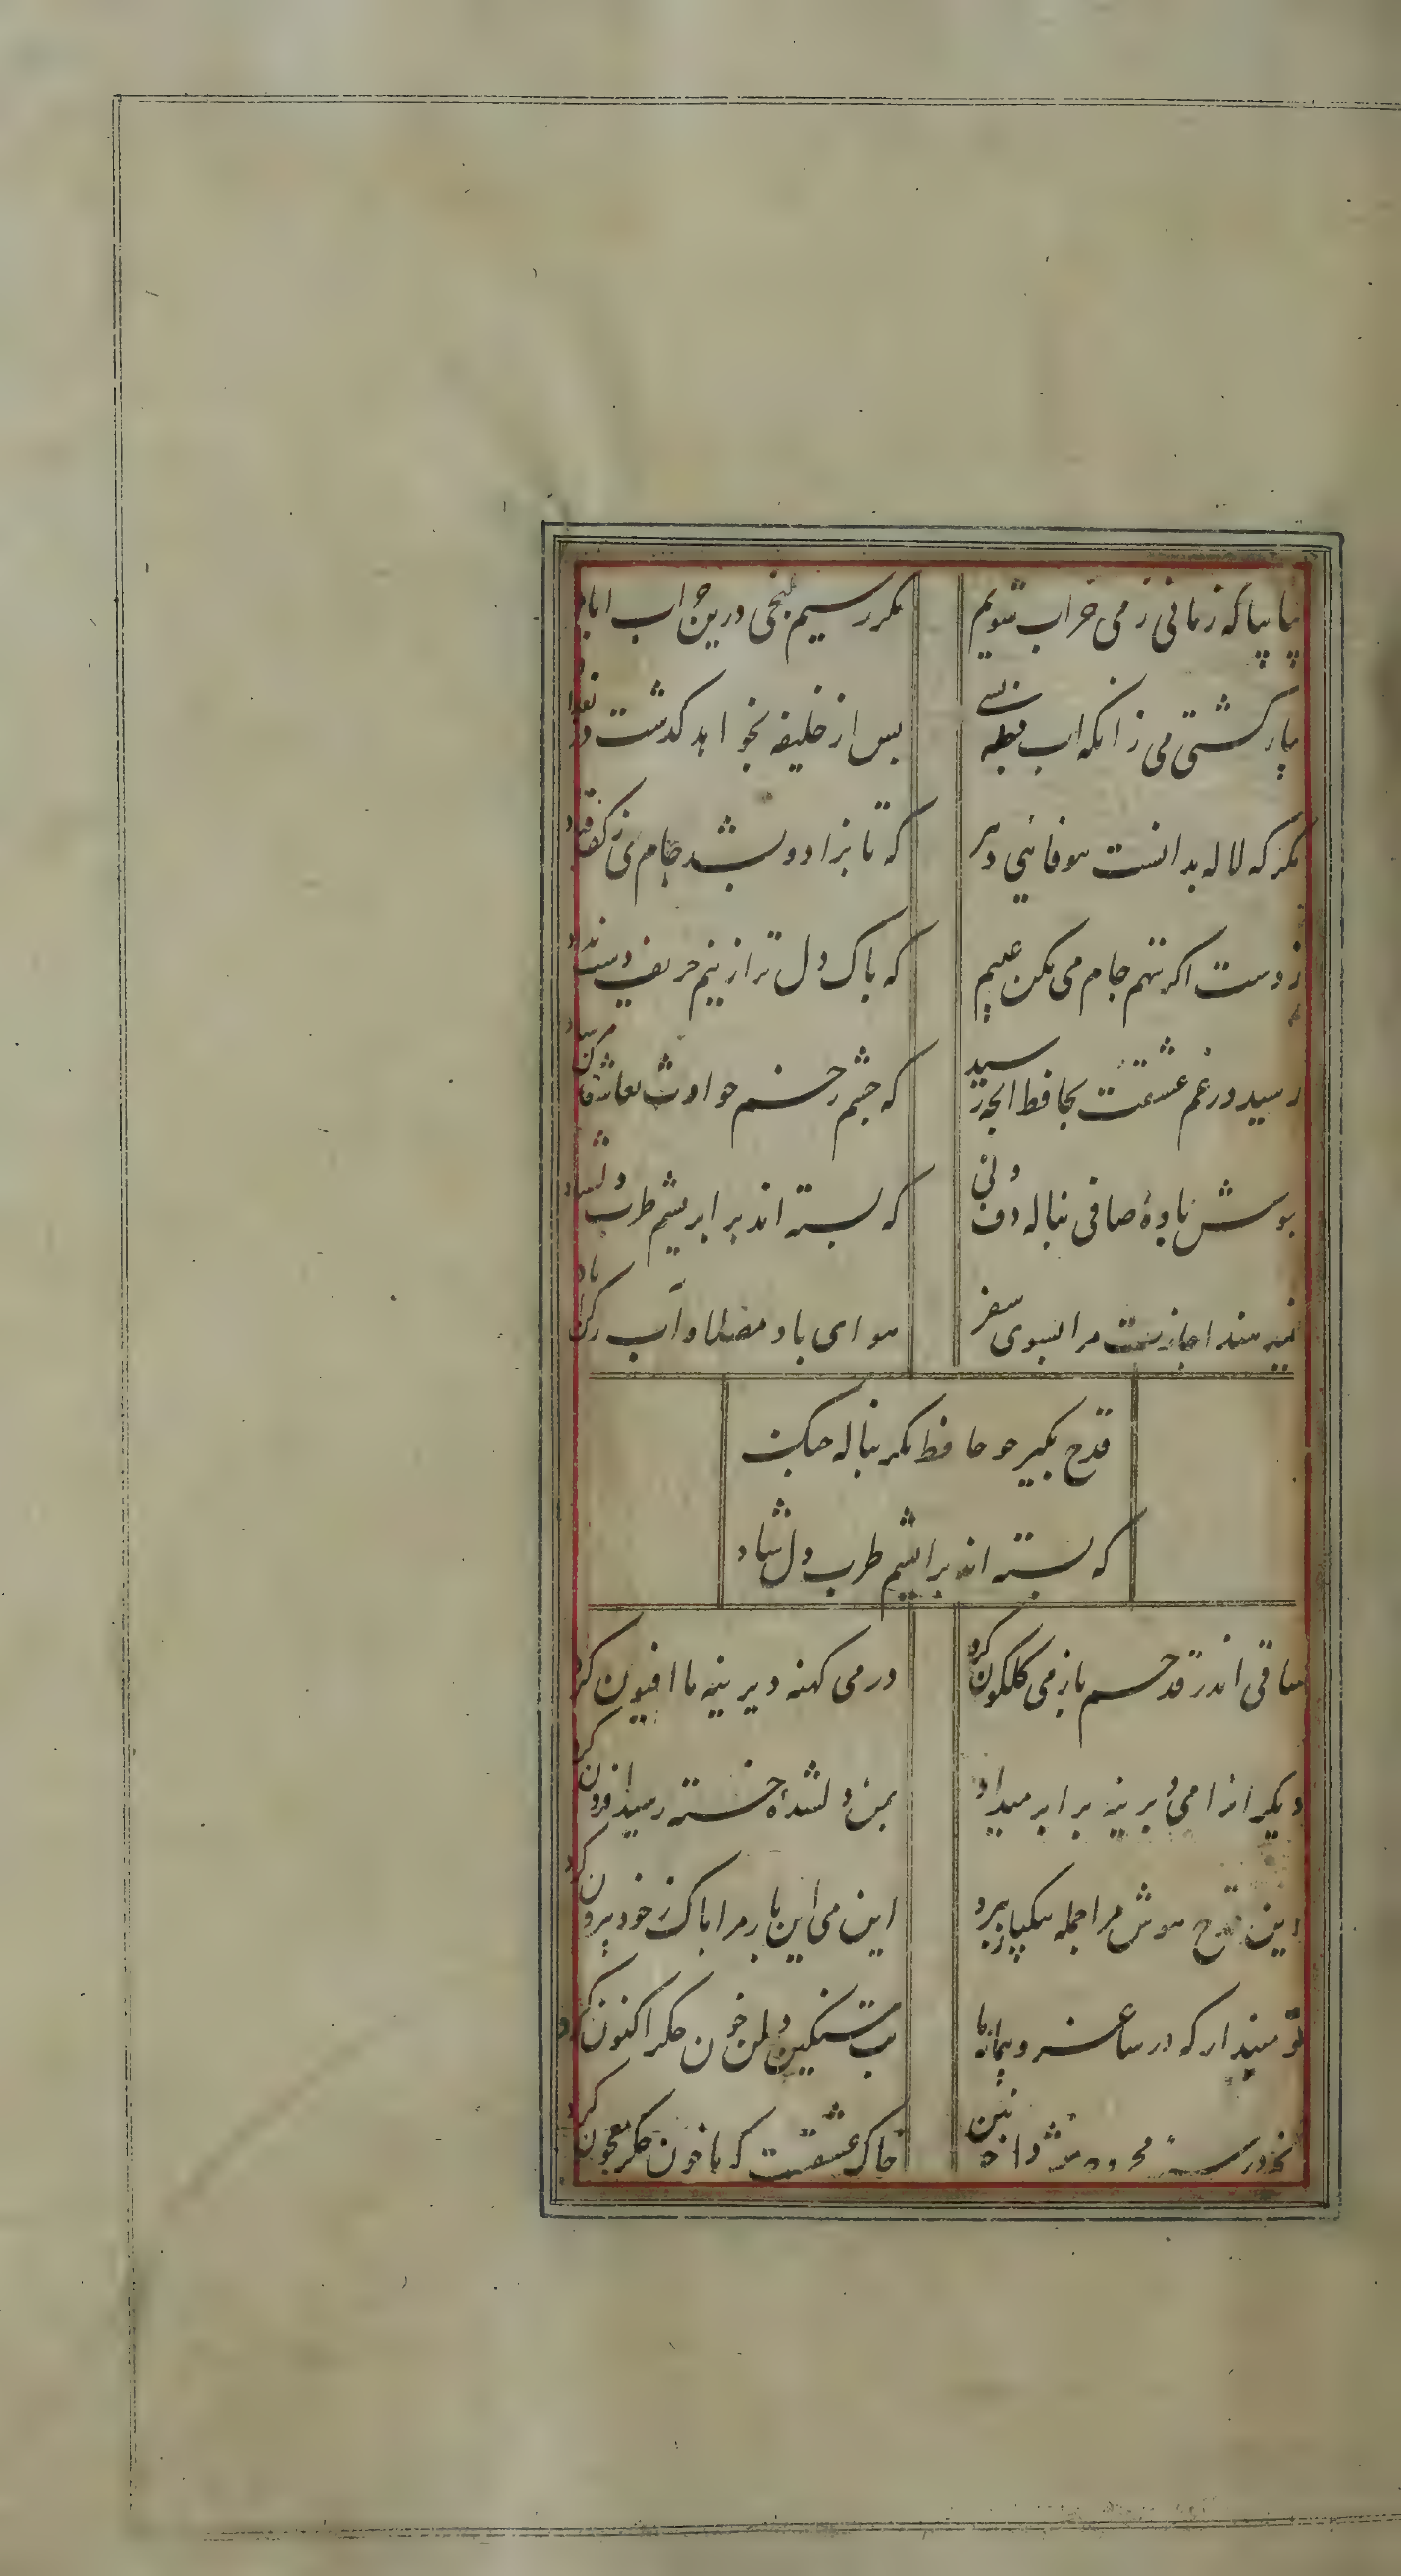 بیا بیا که زمانی ز می خراب شویم
مکر رسیم بکنجی درین خراب اباد
بیار کشتی می زانکه اب دجله بسی
پس از خلیفه بخواهد کذشت در بغداد
مکر که لاله بدانست بیوفائی دهر
که تا بزاد و بشد جام می ز کف ننهاد
ز دست اکر ننهم جام می مکن عیبم
که پاک دل تر ازینم حریف دست نداد
رسید در غم عشقت بحافظ انچه رسید
که چشم زخم حوادث بعاشقان مرساد
بنوش بادهٔ صافی بناله دف و نی
که بسته اند بر ابریشم طرب دلشاد
نمیدهند اجازت مرا بسوی سفر
هوای باد مصلا و آب رکن اباد
قدح مکیر چو حافظ مکر بناله چنک
که بسته اند بر ابریشم طرب دل شاد
ساقی اندر قدحم باز می کلکون کرد
در می کهنه دیرینه ما افیون کرد
دیکرانرا می دیرینه برابر میداد
بمن دلشدهٔ خسته رسید افزون کرد
این قدح هوش مرا جمله بیکبار ببرد
این می این بار مرا پاک ز خود بیرون کرد
تو مپندار که در ساغر و پیمانه ما
بت سنکین دلمن خون جکر اکنون کرد
خاک عشقت که با خون جکر معجون کرد